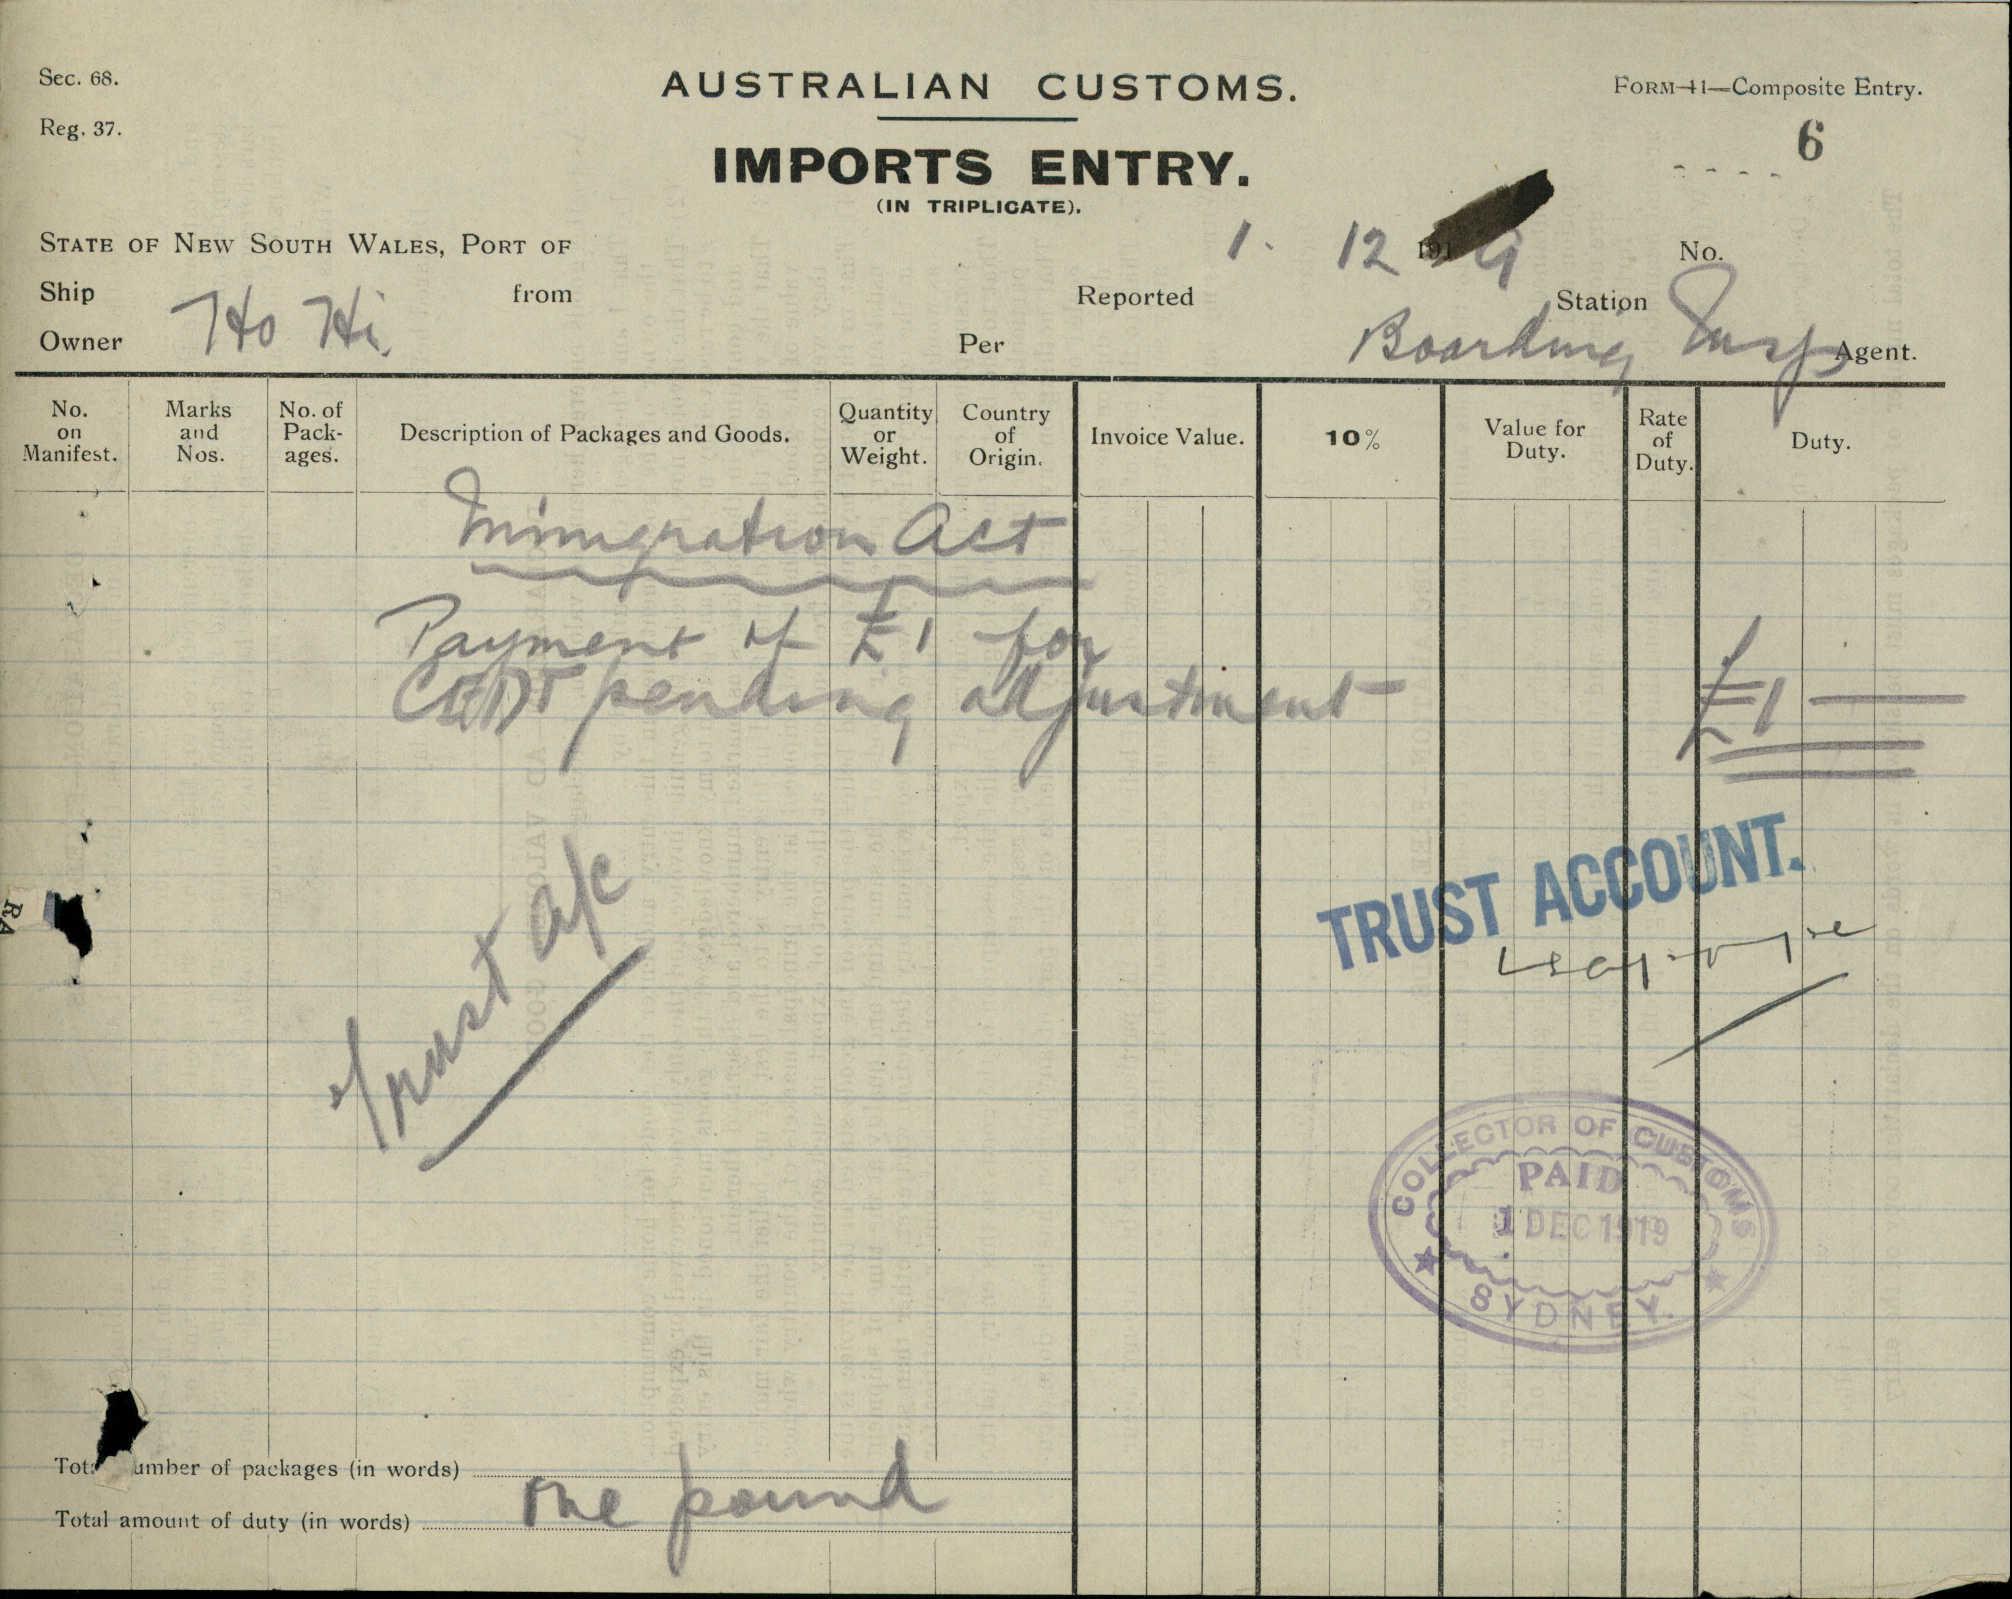 Sec. 68.
Reg. 37.
AUSTRALIAN CUSTOMS.
FORM 41—Composite Entry.
6
IMPORTS ENTRY.
(IN TRIPLICATE).
STATE OF NEW SOUTH WALES, PORT OF
1. 12 1919
No.
Ship
from
Reported
Station
Owner Ho Hi.
Per
Boarding Insp
Agent.
No. on Manifest.
Marks and Nos.
No. of Pack-ages.
Description of Packages and Goods.
Quantity or Weight.
Country of Origin.
Invoice Value.
10%
Value for Duty.
Rate of Duty.
Duty.
Immigration Act
Payment of £1 for
CEDT pending adjustment
£1 —
Trust a/c
TRUST ACCOUNT.
COLLECTOR OF CUSTOMS
PAID
1 DEC 1919
SYDNEY.
RA
Tot umber of packages (in words)
Total amount of duty (in words) One pound